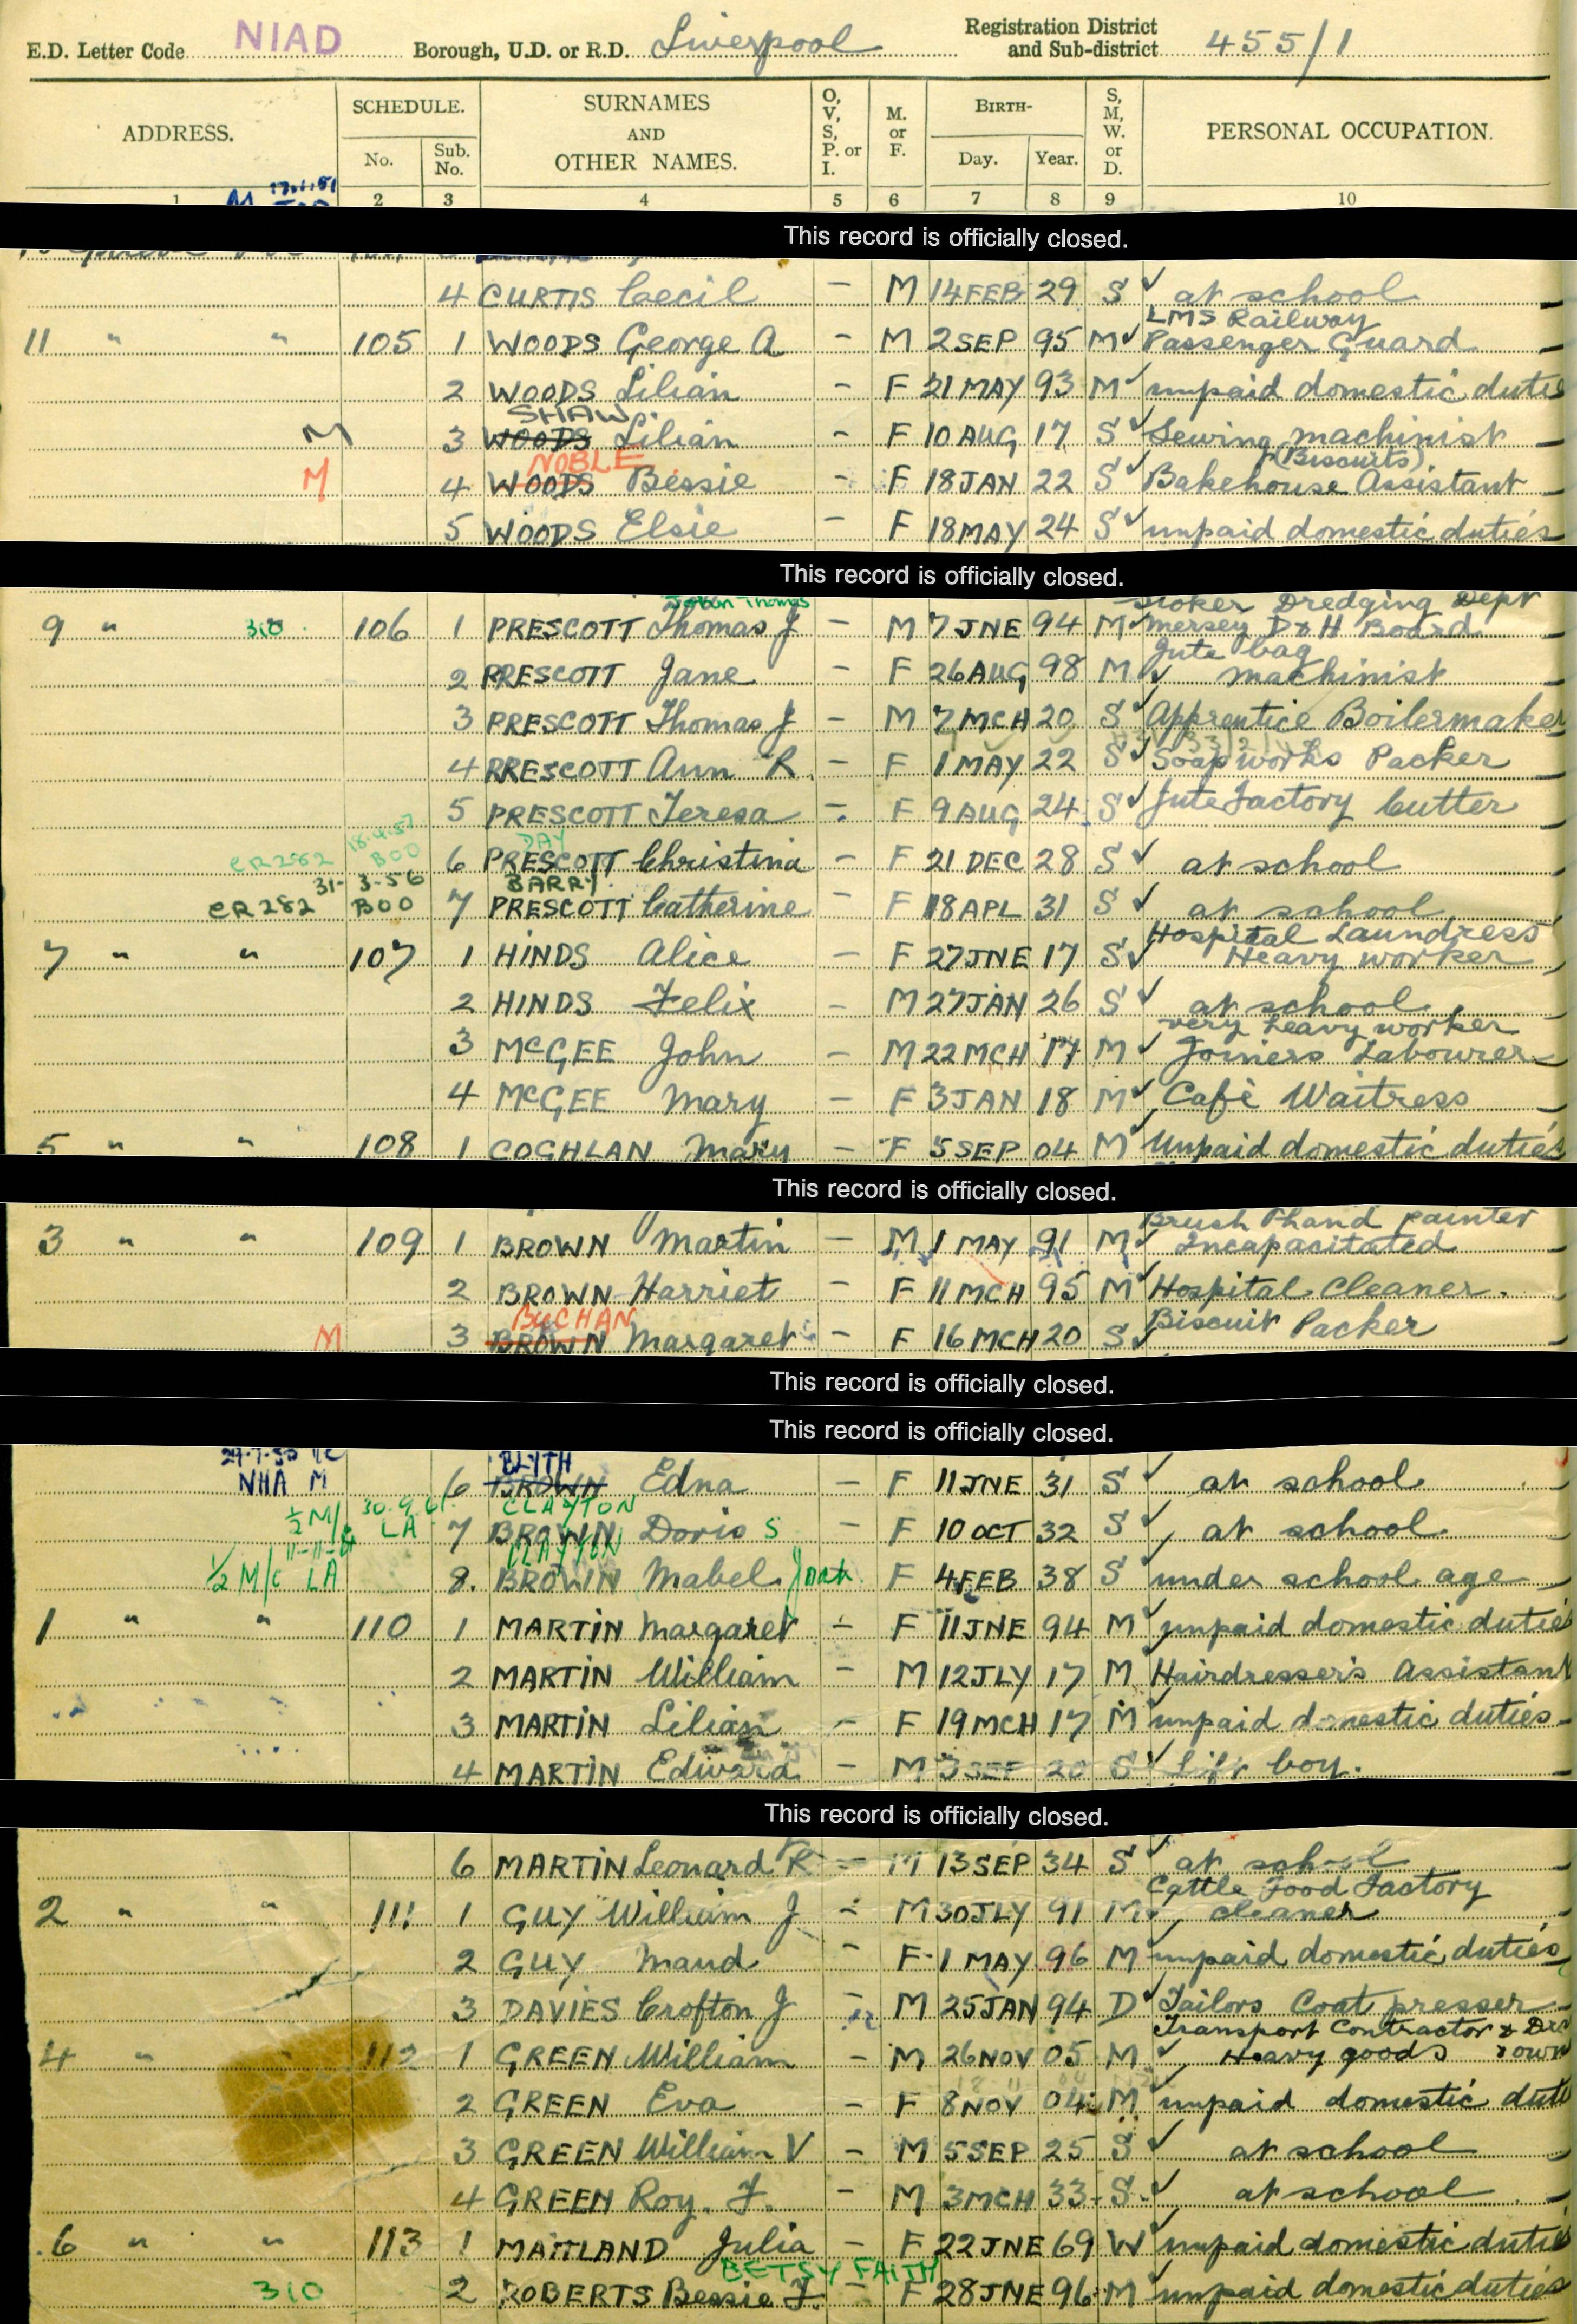 E.D. Letter Code NIAD Borough, U.D. or R.D. Liverpool Registration District and Sub-district 455/1
ADDRESS. SCHEDULE. No. Sub. No. SURNAMES AND OTHER NAMES. O, V, S, P. or I. M. or F. BIRTH- Day. Year. S, M, W. or D. PERSONAL OCCUPATION.
1 2 3 4 5 6 7 8 9 10
This record is officially closed.
4 CURTIS Cecil - M 14 FEB 29 S ✓ at school
LMS Railway
11 " " 105 1 WOODS George A - M 2 SEP 95 M ✓ Passenger Guard
2 WOODS Lilian - F 21 MAY 93 M ✓ unpaid domestic dutie
SHAW.
M 3 WOODS Lilian - F 10 AUG 17 S ✓ Sewing machinist
NOBLE (Biscuits)
M 4 WOODS Bessie - F 18 JAN 22 S ✓ Bakehouse Assistant
5 WOODS Elsie - F 18 MAY 24 S ✓ unpaid domestic duties
This record is officially closed.
John Thomas Stoker Dredging Dept
9 " 310 106 1 PRESCOTT Thomas J - M 7 JNE 94 M ✓ Mersey D & H Board
Jute bag
2 PRESCOTT Jane - F 26 AUG 98 M ✓ machinist
3 PRESCOTT Thomas J - M 7 MCH 20 S ✓ Apprentice Boilermaker
4 PRESCOTT Ann R - F 1 MAY 22 S ✓ Soapworks Packer
5 PRESCOTT Teresa - F 9 AUG 24 S ✓ Jute Factory Cutter
18.4.57 DAY
CR282 BOO 6 PRESCOTT Christina - F 21 DEC 28 S ✓ at school
31-3-56 BARRY
CR282 BOO 7 PRESCOTT Catherine - F 18 APL 31 S ✓ at school
Hospital Laundress
7 " " 107 1 HINDS Alice - F 27 JNE 17 S ✓ Heavy worker
2 HINDS Felix - M 27 JAN 26 S ✓ at school
very heavy worker
3 McGEE John - M 22 MCH 17 M ✓ Joiners Labourer
4 McGEE Mary - F 3 JAN 18 M ✓ Café Waitress
5 " " 108 1 COGHLAN Mary - F 5 SEP 04 M ✓ Unpaid domestic duties
This record is officially closed.
Brush hand painter
3 " " 109 1 BROWN Martin - M 1 MAY 91 M ✓ Incapacitated
2 BROWN Harriet - F 11 MCH 95 M ✓ Hospital Cleaner.
BUCHAN
M 3 BROWN Margaret - F 16 MCH 20 S ✓ Biscuit Packer
This record is officially closed.
This record is officially closed.
BLYTH
NHA M 6 BROWN Edna - F 11 JNE 31 S ✓ at school
30.9.61 CLAYTON
½ M/c LA 7 BROWN Doris S - F 10 OCT 32 S ✓ at school
CLAYTON
½ M/c LA 8. BROWN Mabel F 4 FEB 38 S under school age
1 " " 110 1 MARTIN Margaret - F 11 JNE 94 M ✓ unpaid domestic dutie
2 MARTIN William - M 12 JLY 17 M Hairdresser's Assistant
3 MARTIN Lilian - F 19 MCH 17 M unpaid domestic duties
4 MARTIN Edward - M 3 SEP 20 S ✓ Lift boy.
This record is officially closed.
6 MARTIN Leonard R - M 13 SEP 34 S ✓ at school
Cattle Food Factory
2 " " 111 1 GUY William J - M 30 JLY 91 M ✓ cleaner
2 GUY Maud - F 1 MAY 96 M unpaid domestic duties
3 DAVIES Crofton J - M 25 JAN 94 D ✓ Tailors Coat presser
Transport Contractor &
4 " " 112 1 GREEN William - M 26 NOV 05 M ✓ Heavy goods
2 GREEN Eva - F 8 NOV 04 M ✓ unpaid domestic duti
3 GREEN William V - M 5 SEP 25 S ✓ at school
4 GREEN Roy. F. - M 3 MCH 33 S ✓ at school
6 " " 113 1 MAITLAND Julia - F 22 JNE 69 W ✓ unpaid domestic dutie
BETSY FAITH
310 2 ROBERTS Bessie F. - F 28 JNE 96 M ✓ unpaid domestic duties